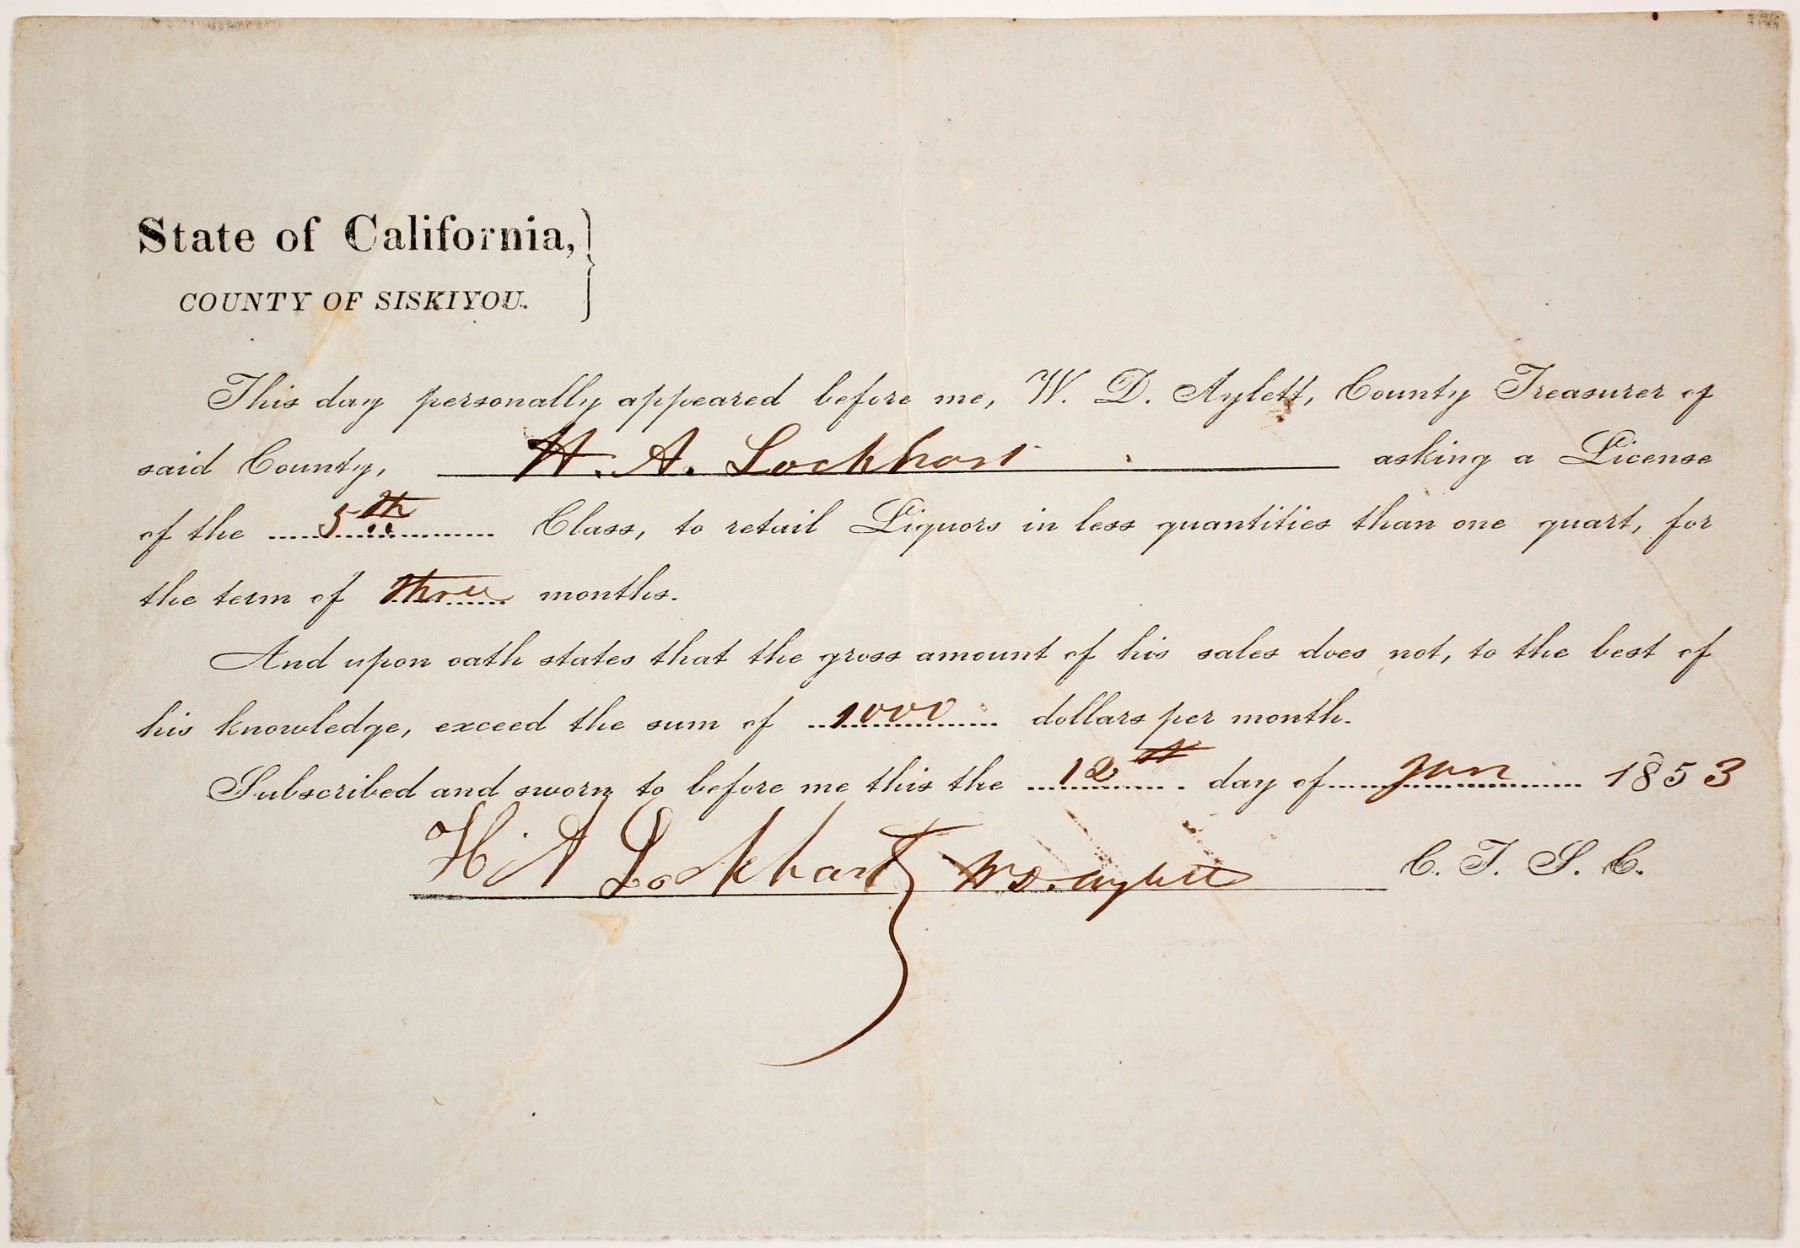 State of California,
COUNTY OF SISKIYOU.
This day personally appeared before me, W. D. Aylett, County Treasurer of
said County, H. A. Lockhart asking a License
of the 5th Class, to retail Liquors in less quantities than one quart, for
the term of three months.
And upon oath states that the gross amount of his sales does not, to the best of
his knowledge, exceed the sum of 1000 dollars per month.
Subscribed and sworn to before me this the 12th day of Jan 1853
H. A Lockhart W. D. Aylett C. T. S. C.